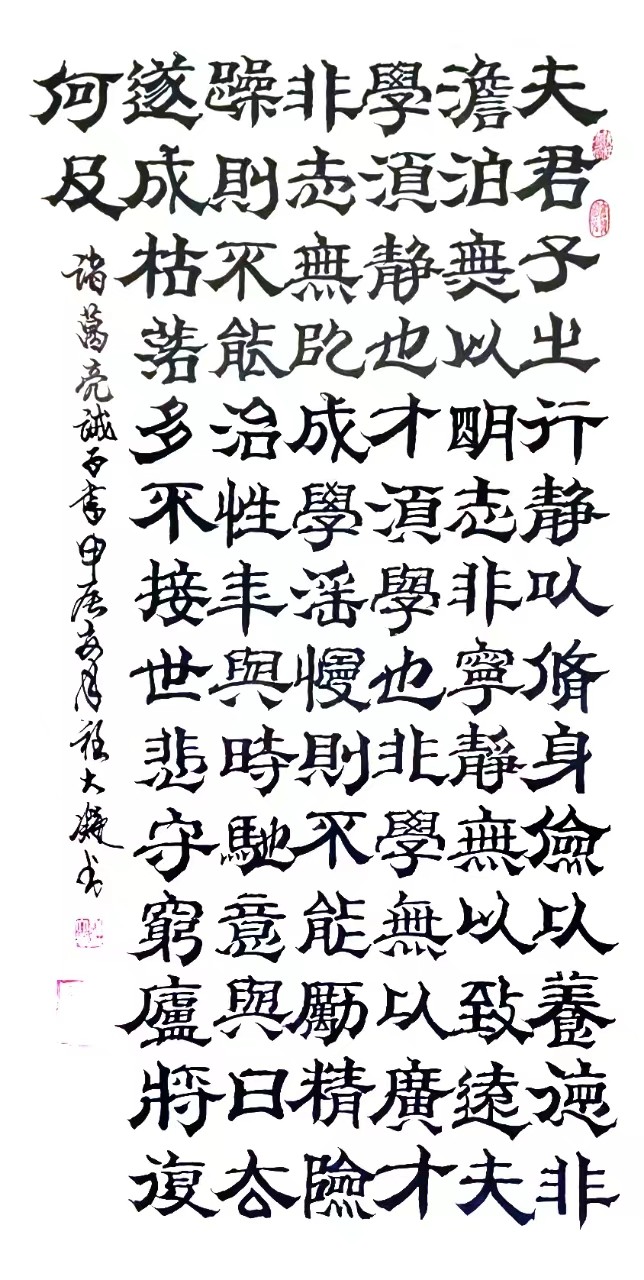 夫君子之行静以脩身儉以養德非
澹泊無以明志非寧靜無以致遠夫
學須静也才須學也非學無以廣才
非志無以成學滛慢則不能勵精險
躁則不能治性年與時馳意與日去
遂成枯落多不接世悲守窮廬將復
何及
諸葛亮誡子書甲辰月大書